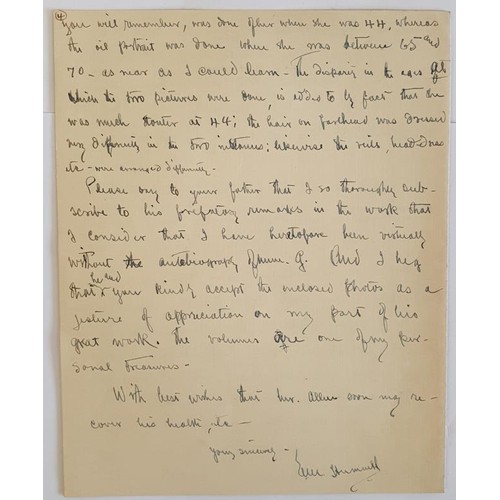 4
you will remember, was done of her when she was 44, whereas
the oil portrait was done when she was between 65 and
70 - as near as I could learn - The disparity in the ages at
which the two pictures were done, is added to by fact that she
was much stouter at 44; the hair on forehead was dressed
very differently in the two instances; likewise the veils, head dress
etc - were arranged differently.
Please say to your father that I so thoroughly sub-
scribe to his prefatory remarks in the work that
I consider that I have heretofore been virtually
without the autobiography of Mme. G. And I beg
that he and you kindly accept the enclosed photos as a
gesture of appreciation on my part of his
great work. The volumes are one of my per-
sonal treasures -
With best wishes that Mr. Allen soon may re-
cover his health, etc -
Yours sincerely -